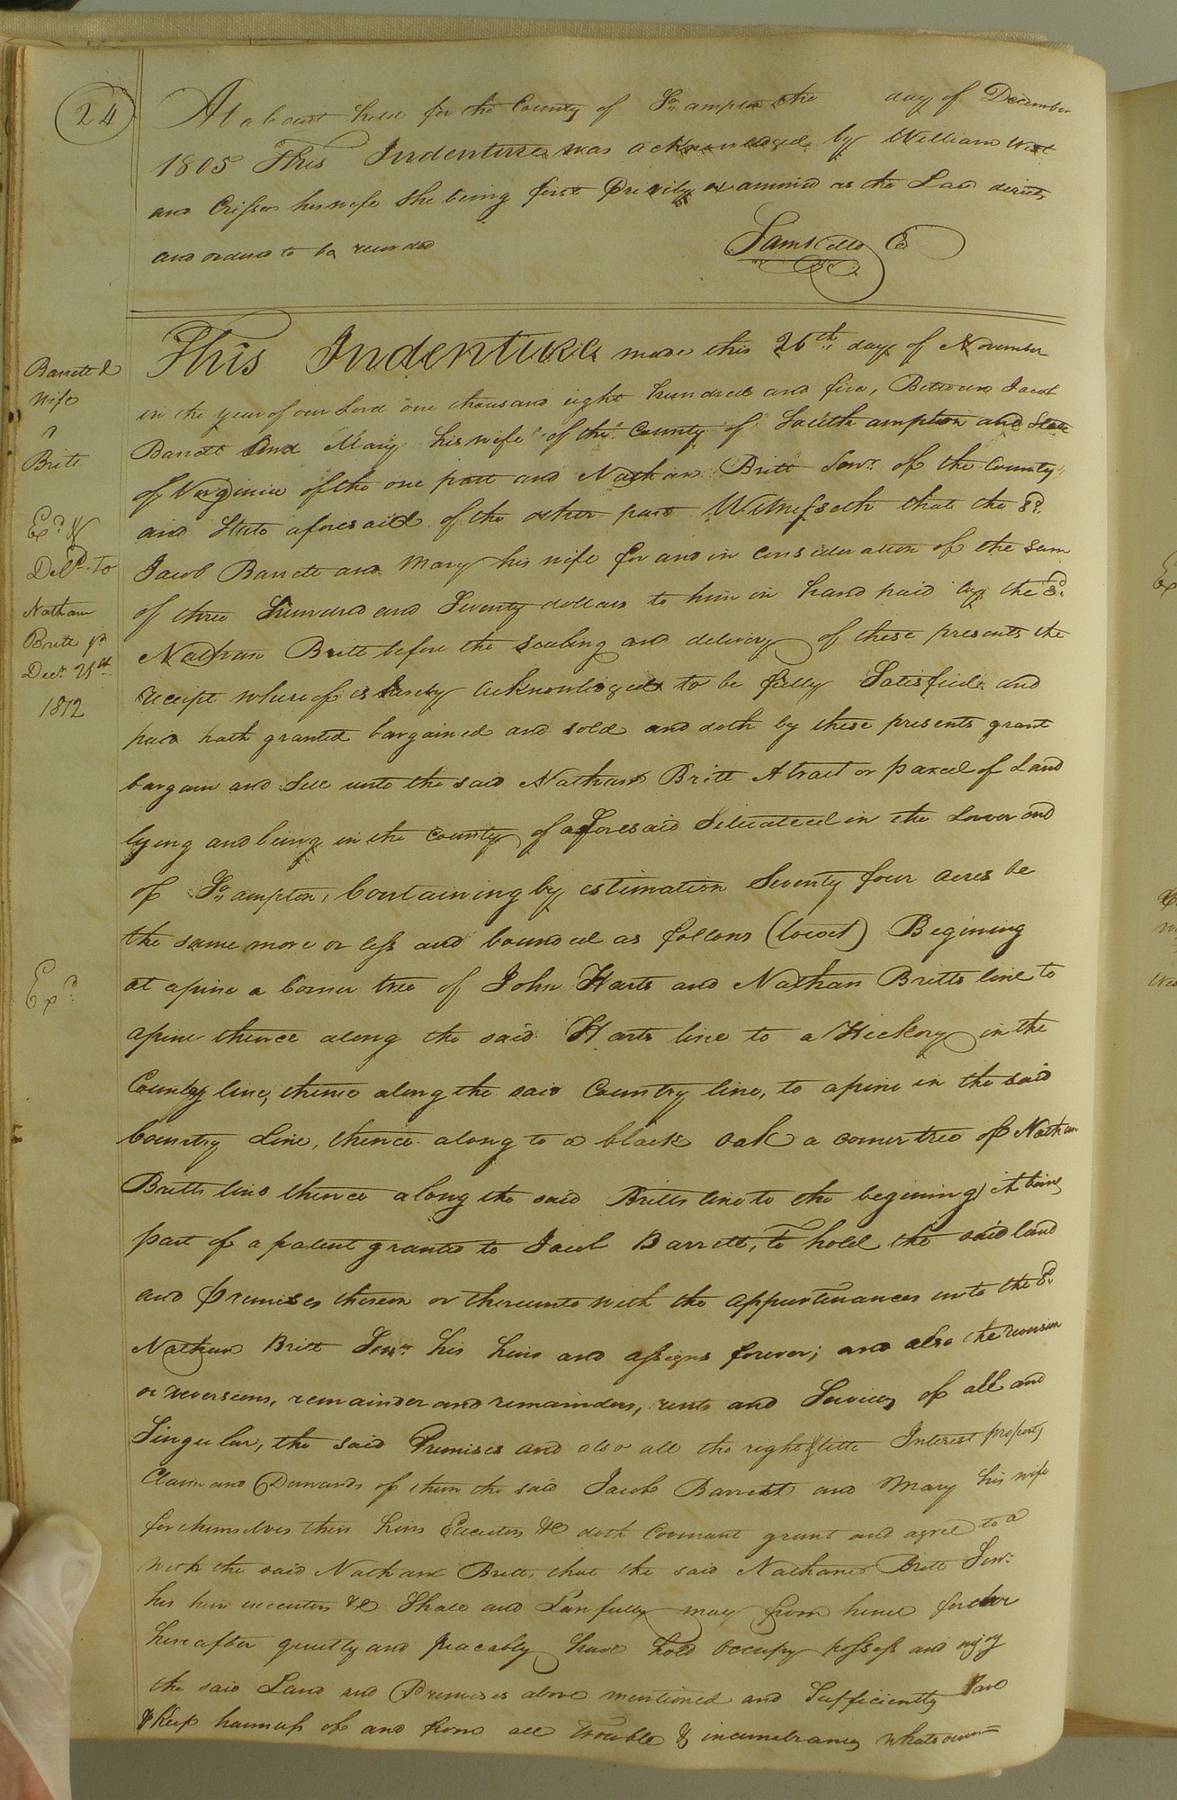 24
At a Court held for the County of So,,ampton the day of December
1805 This Indenture was acknowledged by William West
and Crissa his wife She being first Privily examined as the Law directs
and ordered to be recorded
Saml Kello C
Barrett &
Wife
Britt
Exd. &
Deld. to
Nathan
Britt
Decr. 21st
1812
Exd
This Indenture made this 26th, day of November
in the year of our Lord one thousand eight hundred and five, Between Jacob
Barrett And Mary his wife of the County of Southampton and State
of Virginia of the one part and Nathan Britt Senr. of the County
and State aforesaid of the other part Witnesseth that the sd.
Jacob Barrett and Mary his wife for and in consideration of the sum
of three hundred and Seventy dollars to him in hand paid by the sd.
Nathan Britt before the sealing and delivery of these presents the
receipt whereof is hereby acknowledged to be fully Satisfied and
paid hath granted bargained and sold and doth by these presents grant
bargain and Sell unto the said Nathan Britt A tract or parcel of Land
lying and being in the County of aforesaid Situateed in the Lower end
of So,,ampton, Containing by estimation Seventy four acres be
the same more or less and bounded as follows (towit) Begining
at a pine a Corner tree of John Harts and Nathan Britts line to
a pine thence along the said Harts line to a Hickory in the
County line, thence along the said Country line, to a pine in the said
Country Line, thence along to a black oak a corner tree of Nathan
Britts line thence along the said Britts line to the begining, it being
part of a patent granted to Jacob Barrett, to hold the said land
and premises therein or thereunto with the appurtenances unto the sd.
Nathan Britt Senr. his heirs and assigns forever; and also the reversion
or reversions, remainder and remainders, rents and Services of all and
Singular, the said Premises and also all the right & title Interest property
Claim and Demands of them the said Jacob Barrett and Mary his wife
for themselves their heirs Executors &c doth Covenant grant and agree to a
with the said Nathan Britt, that the said Nathan Britt Senr.
his heirs executors &c Shall and Lawfully may from hence forever
hereafter quietly and peacably have hold occupy possess and enjoy
the said Land and Premises above mentioned and Sufficiently Save
& keep harmless of and from all trouble & incumbrances whatsoever